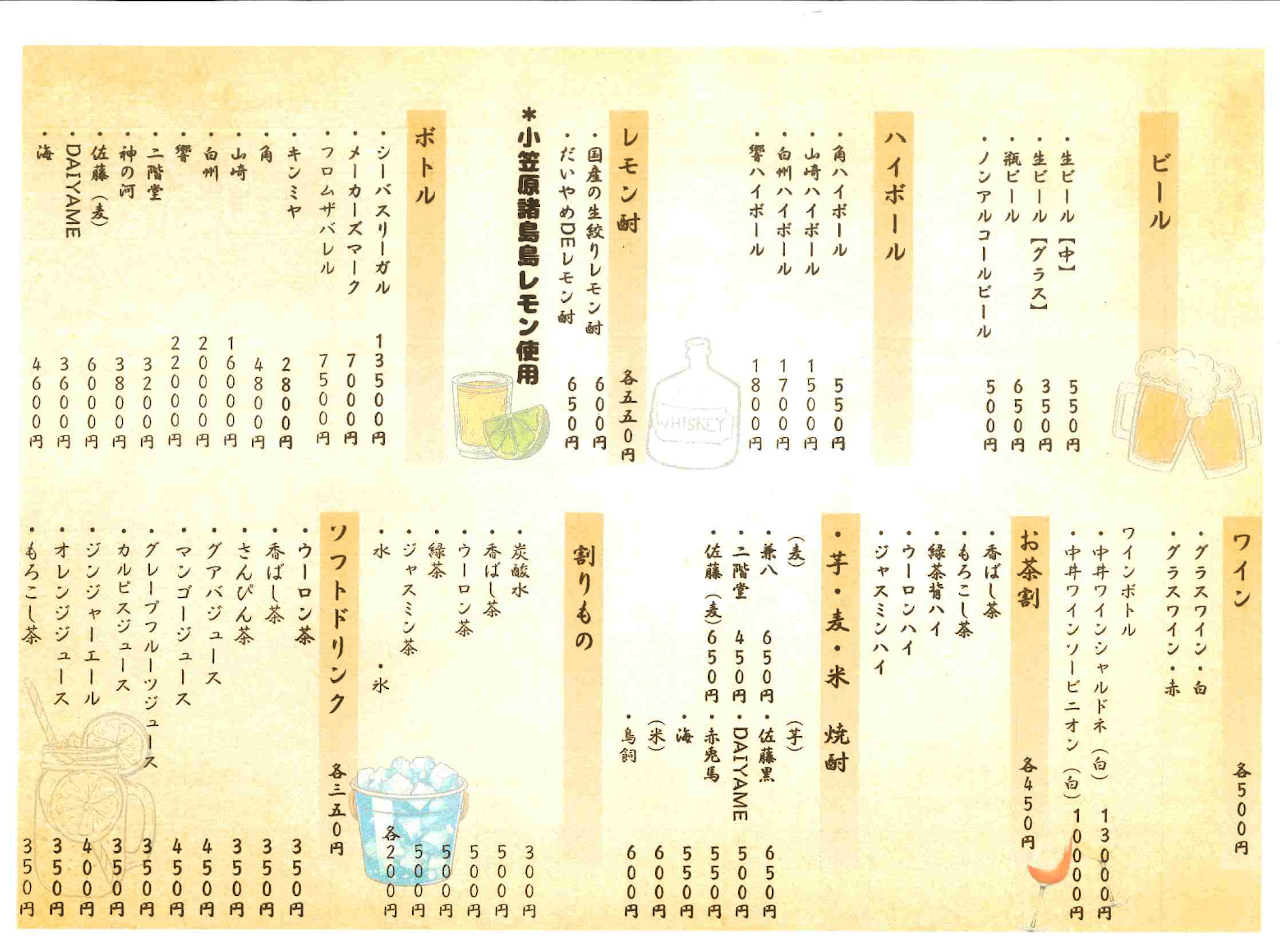 ビール
・生ビール【中】 550円
・生ビール【グラス】 350円
・瓶ビール 650円
・ノンアルコールビール 500円
ハイボール
・角ハイボール 550円
・山崎ハイボール 1500円
・白州ハイボール 1700円
・響ハイボール 1800円
WHISKEY
レモン酎 各五五0円
・国産の生絞りレモン酎 600円
・だいやめDEレモン酎 650円
＊小笠原諸島島レモン使用
ボトル
・シーバスリーガル 13500円
・メーカーズマーク 7000円
・フロムザバレル 7500円
・キンミヤ 2800円
・角 4800円
・山崎 16000円
・白州 20000円
・響 22000円
・二階堂 3200円
・神の河 3800円
・佐藤(麦) 6000円
・DAIYAME 3600円
・海 4600円
ワイン 各500円
・グラスワイン・白
・グラスワイン・赤
ワインボトル
・中井ワインシャルドネ(白) 13000円
・中井ワインソービニオン(白) 10000円
お茶割 各450円
・香ばし茶
・もろこし茶
・緑茶背ハイ
・ウーロンハイ
・ジャスミンハイ
・芋・麦・米 焼酎
(麦)
・兼八 650円
・二階堂 450円
・佐藤(麦)650円
(芋)
・佐藤黒 650円
・DAIYAME 500円
・赤兎馬 550円
・海 550円
(米) 600円
・鳥飼 600円
割りもの
・炭酸水 300円
・香ばし茶 500円
・ウーロン茶 500円
・緑茶 500円
・ジャスミン茶 500円
・水 ・氷 各200円
ソフトドリンク 各三五0円
・ウーロン茶 350円
・香ばし茶 350円
・さんぴん茶 350円
・グアバジュース 450円
・マンゴージュース 450円
・グレープフルーツジュース 350円
・カルピスジュース 350円
・ジンジャーエール 400円
・オレンジジュース 350円
・もろこし茶 350円